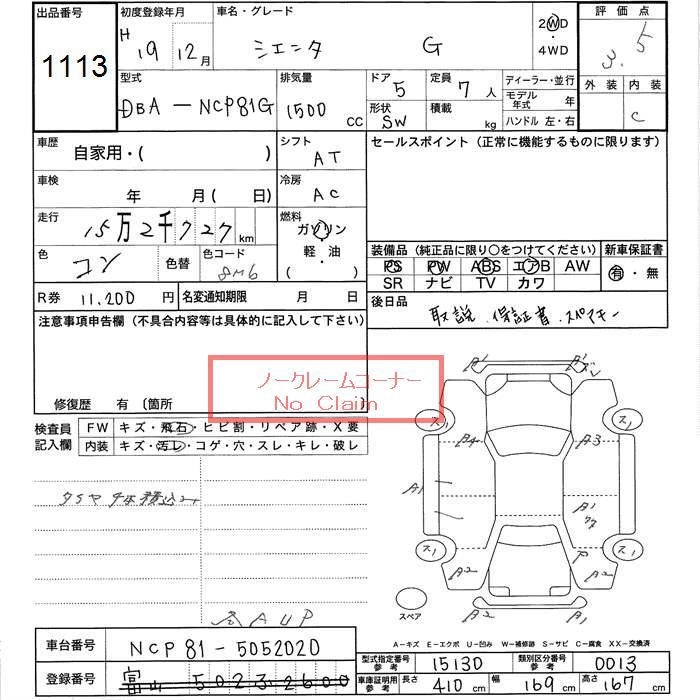 出品番号
1113
初度登録年月
H 19 12月
車名・グレード
シエンタ G
2WD
4WD
評価点
3.5
外装 内装
C
型式
DBA-NCP81G
排気量
1500 CC
ドア 5
形状 SW
定員 7 人
積載 kg
ディーラー・並行
モデル年式 年
ハンドル 左・右
車歴
自家用・( )
シフト
AT
セールスポイント (正常に機能するものに限ります)
車検
年 月( 日)
冷房
AC
走行
15万2千727 km
燃料
ガソリン
軽・油
( )
色
コン
色替
色コード
8M6
装備品 (純正品に限り○をつけてください)
新車保証書
PS PW ABS エアB AW
有・無
SR ナビ TV カワ
R券 11,200 円
名変通知期限 月 日
後日品
取説、保証書、スペアキー
注意事項申告欄 (不具合内容等は具体的に記入して下さい)
ノークレームコーナー
No Claim
修復歴 有 〔箇所 〕
検査員記入欄
FW キズ・飛石・ヒビ割・リペア跡・X要
内装 キズ・汚レ・コゲ・穴・スレ・キレ・破レ
タイヤ4本積込ミ
A1
A1
ス1
ス1
A4
A3
A1
A1
ス1
ス1
A2
A2
A2
A2
スペア
A-キズ E-エクボ U-凹み W-補修跡 S-サビ C-腐食 XX-交換済
車台番号
NCP81-5052020
登録番号
富山 502 ミ 2600
型式指定番号 参考
15130
類別区分番号 参考
0013
車庫証明用 参考
長さ 410 cm 幅 169 cm 高さ 167 cm